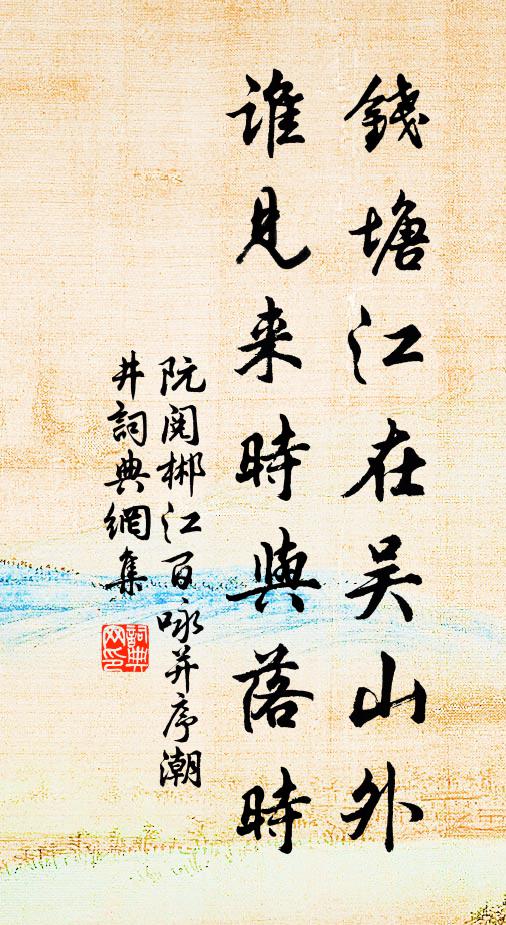 錢塘江在吴山外
谁見来時與落時
阮閱郴江百咏并序潮
井詞典網集
詞典网印